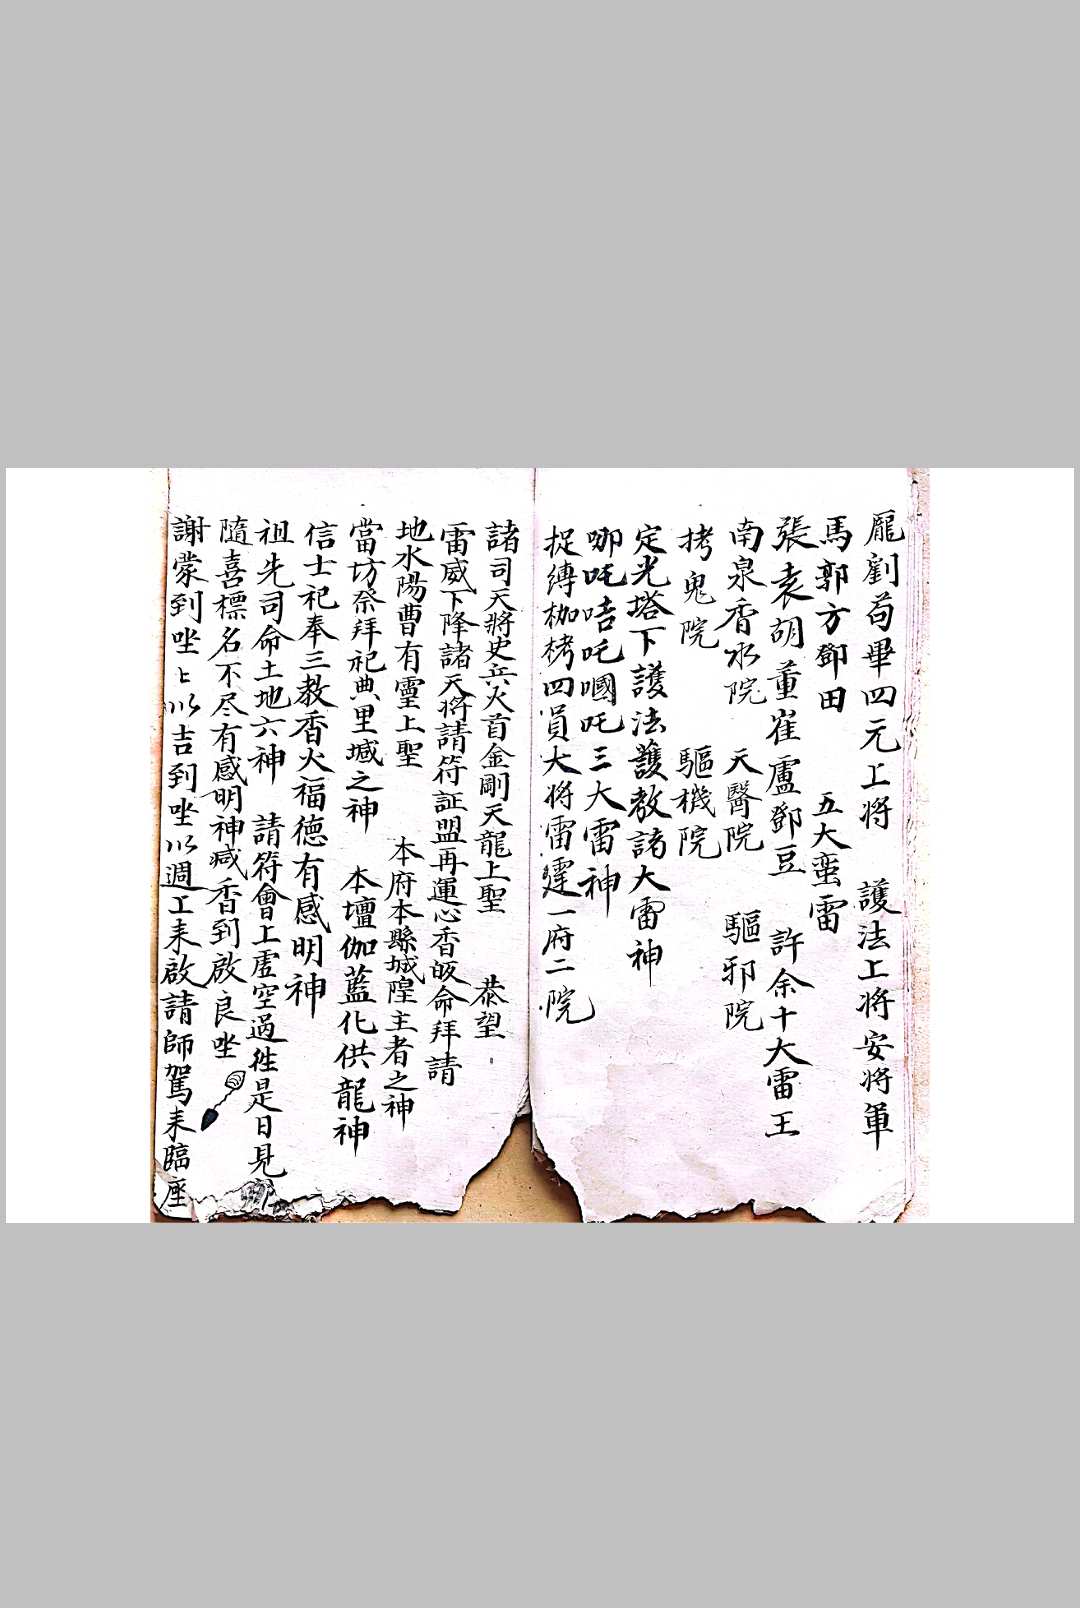 龐劉苟畢四元上将 護法上将安将軍
馬郭方鄧田 五大蛮雷
張袁胡董崔盧鄧豆 許余十大雷王
南泉香水院 天醫院 驅邪院
拷鬼院 驅機院
定光塔下護法護教諸大雷神
哪吒咭吒嘓吒三大雷神
捉縛枷栲四員大将雷霆一府二院
諸司天將史兵火首金剛天龍上聖 恭望
雷威下降諸天将請符証盟再運心香皈命拜請
地水陽曹有靈上聖 本府本縣城隍主者之神
當坊祭拜祀典里堿之神 本壇伽藍化供龍神
信士祀奉三教香火福德有感明神
祖先司命土地六神 請符會上虛空過徃是日見
隨喜標名不尽有感明神咸香到啟良坐
謝蒙到坐上以吉到坐以週工耒啟請師駕耒臨座